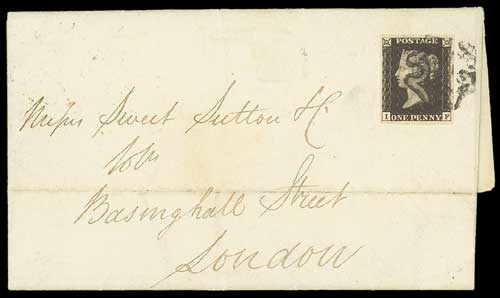 POSTAGE
I F
ONE PENNY
Messrs Sweet Sutton & Co
Basinghall Street
London